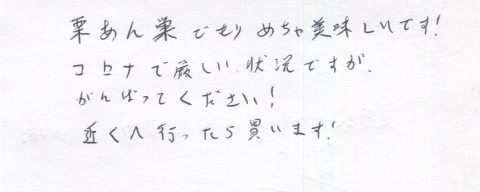 栗あん巣ごもりめちゃ美味しいです!
コロナで厳しい状況ですが、
がんばってください!
近くへ行ったら買います!